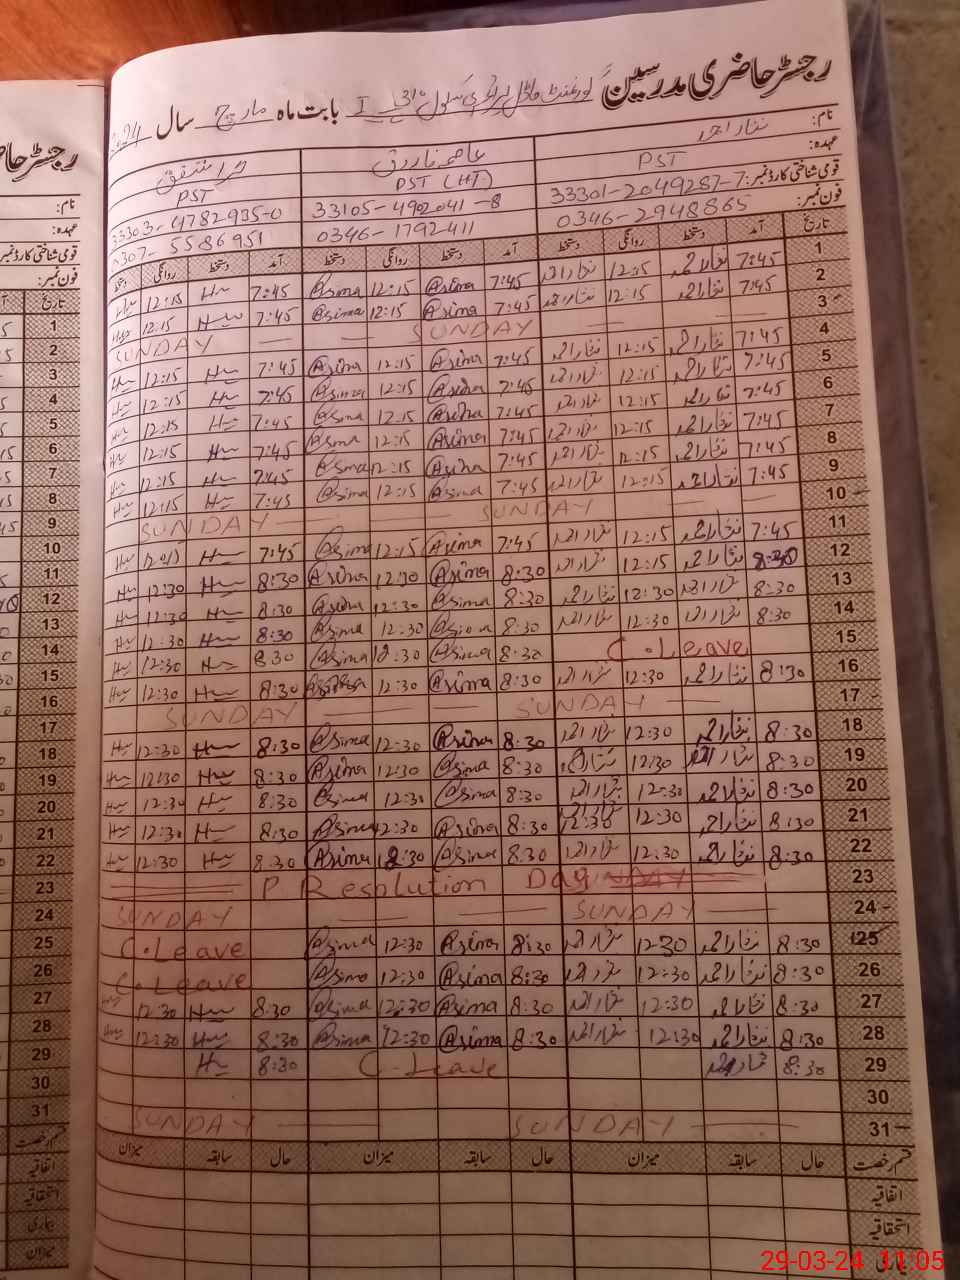 رجسٹر حاضری مدرسین گورنمنٹ ماڈل پرائمری سکول بابت ماہ مارچ سال 2024
نام: نثار احمد عاصمہ فاروق
عہدہ: PST PST (HT) PST
قومی شناختی کارڈ نمبر: 33301-2049287-7 33105-4902041-8 33303-4782935-0
فون نمبر: 0346-2948865 0346-1792411 0307-5586951
تاریخ آمد دستخط روانگی دستخط آمد دستخط روانگی دستخط آمد دستخط روانگی دستخط
1 7:45 نثار احمد 12:15 نثار احمد 7:45 Asima 12:15 Asima 7:45 12:15
2 7:45 نثار احمد 12:15 نثار احمد 7:45 Asima 12:15 Asima 7:45 12:15
3 SUNDAY SUNDAY
4 7:45 نثار احمد 12:15 نثار احمد 7:45 Asima 12:15 Asima 7:45 12:15
5 7:45 نثار احمد 12:15 نثار احمد 7:45 Asima 12:15 Asima 7:45 12:15
6 7:45 نثار احمد 12:15 نثار احمد 7:45 Asima 12:15 Asima 7:45 12:15
7 7:45 نثار احمد 12:15 نثار احمد 7:45 Asima 12:15 Asima 7:45 12:15
8 7:45 نثار احمد 12:15 نثار احمد 7:45 Asima 12:15 Asima 7:45 12:15
9 7:45 نثار احمد 12:15 نثار احمد 7:45 Asima 12:15 Asima 7:45 12:15
10 SUNDAY SUNDAY
11 7:45 نثار احمد 12:15 نثار احمد 7:45 Asima 12:15 Asima 7:45
12 8:30 نثار احمد 12:15 نثار احمد 8:30 Asima 12:30 Asima 8:30 12:30
13 8:30 نثار احمد 12:30 نثار احمد 8:30 Asima 12:30 Asima 8:30 12:30
14 8:30 نثار احمد 12:30 نثار احمد 8:30 Asima 12:30 Asima 8:30 12:30
15 C.Leave 8:30 Asima 12:30 Asima 8:30 12:30
16 8:30 نثار احمد 12:30 نثار احمد 8:30 Asima 12:30 Asima 8:30 12:30
17 SUNDAY SUNDAY
18 8:30 نثار احمد 12:30 نثار احمد 8:30 Asima 12:30 Asima 8:30 12:30
19 8:30 نثار احمد 12:30 نثار احمد 8:30 Asima 12:30 Asima 8:30 12:30
20 8:30 نثار احمد 12:30 نثار احمد 8:30 Asima 12:30 Asima 8:30 12:30
21 8:30 نثار احمد 12:30 نثار احمد 12:30 8:30 Asima 12:30 Asima 8:30 12:30
22 8:30 نثار احمد 12:30 نثار احمد 8:30 Asima 12:30 Asima 8:30 12:30
23 P Resolution Day
24 SUNDAY SUNDAY
25 8:30 نثار احمد 12:30 نثار احمد 8:30 Asima 12:30 Asima C.Leave
26 8:30 نثار احمد 12:30 نثار احمد 8:30 Asima 12:30 Asima C.Leave
27 8:30 نثار احمد 12:30 نثار احمد 8:30 Asima 12:30 Asima 8:30 12:30
28 8:30 نثار احمد 12:30 نثار احمد 8:30 Asima 12:30 Asima 8:30 12:30
29 8:30 نثار احمد C.Leave 8:30
30
31 SUNDAY SUNDAY
قسم رخصت حال سابقہ میزان حال سابقہ میزان حال سابقہ میزان
اتفاقیہ
استحقاقیہ
بیماری
29-03-24 11:05
رجسٹر حاضری
نام:
عہدہ:
قومی شناختی کارڈ نمبر
فون نمبر:
تاریخ
1
2
3
4
5
6
7
8
9
10
11
12
13
14
15
16
17
18
19
20
21
22
23
24
25
26
27
28
29
30
31
قسم رخصت
اتفاقیہ
استحقاقیہ
بیماری
میزان